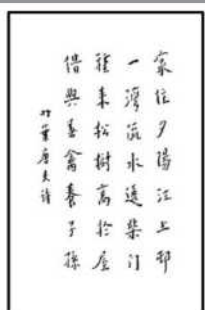 家住夕陽江上邨
一灣流水遶柴门
種来松樹高於屋
借與春禽養子孫
葉唐夫诗